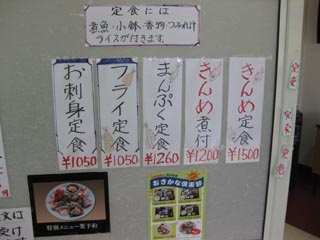 定食には
煮魚・小鉢・香物・つみれ汁
ライスが付きます。
きんめ定食
¥1500
きんめ煮付
¥1200
まんぷく定食
¥1260
フライ定食
¥1050
お刺身定食
¥1050
おさかな倶楽部
特別メニュー要予約